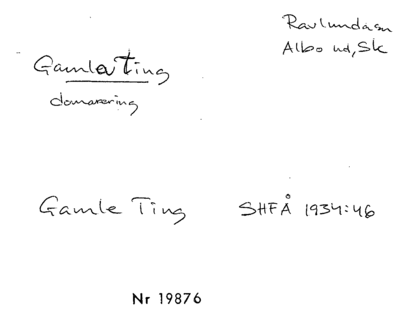 Ravlundasn
Albo hd, Sk
Gamla Ting
domarering
Gamle Ting SHFÅ 1934:46
Nr 19876